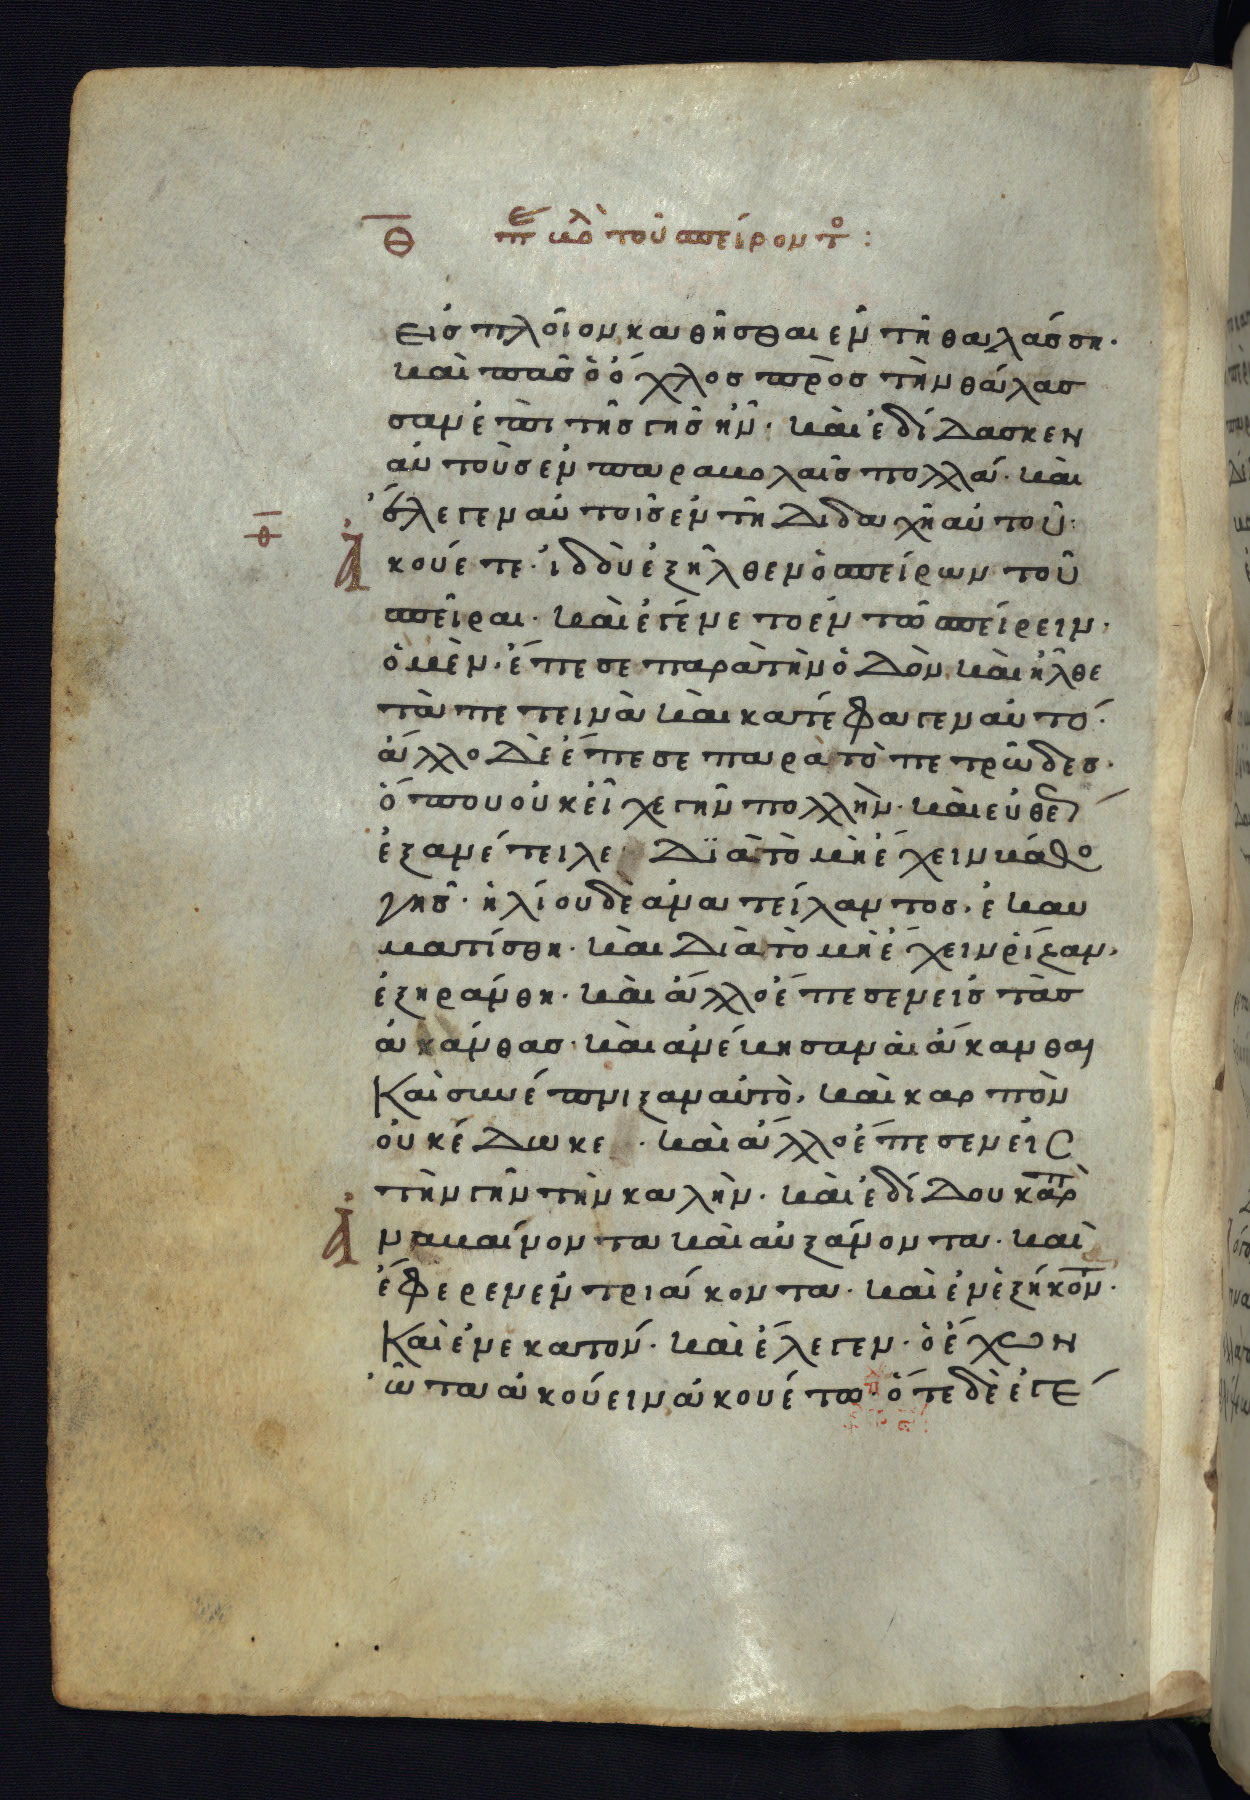 Θ πε βολ τοῦ σπείροντο :
εἰς πλοῖον καθῆσθαι ἐν τῇ θαλάσσῃ·
καὶ πᾶς ὁ ὄχλος πρὸς τὴν θάλασ
σαν ἐπὶ τῆς γῆς ἦν· καὶ ἐδίδασκεν
αὐτοὺς ἐν παραβολαῖς πολλά· καὶ
ἔλεγεν αὐτοῖς ἐν τῇ διδαχῇ αὐτοῦ:
θ Ἀκούετε· ἰδοὺ ἐξῆλθεν ὁ σπείρων τοῦ
σπεῖραι· καὶ ἐγένετο ἐν τῶ σπείρειν·
ὃ μὲν· ἔπεσε παρὰ τὴν ὁδὸν καὶ ἦλθε
τὰ πετεινὰ καὶ κατέφαγεν αὐτό·
ἄλλο δὲ ἔπεσε παρὰ τὸ πετρῶδες·
ὅπου οὐκ εἶχε γῆν πολλὴν· καὶ εὐθε
ἐξανέτειλε διὰ τὸ μὴ ἔχειν βάθο
γῆς· ἡλίου δὲ ἀνατείλαντος· ἐκαυ
ματίσθη· καὶ διὰ τὸ μὴ ἔχειν ῥίζαν·
ἐξηράνθη· καὶ ἄλλο ἔπεσεν εἰς τὰς
ἀκάνθας· καὶ ἀνέβησαν αἱ ἄκανθαι
Καὶ συνέπνιξαν αὐτὸ· καὶ καρπὸν
οὐκ ἔδωκε· καὶ ἄλλο ἔπεσεν εἰς
τὴν γῆν τὴν καλὴν· καὶ ἐδίδου καρπ
Ἀναβαίνοντα καὶ αὐξάνοντα· καὶ
ἔφερεν ἐν τριάκοντα· καὶ ἐν ἐξήκον·
Καὶ ἐν ἐκατόν· καὶ ἔλεγεν· ὁ ἔχων
ὦτα ἀκούειν ἀκουέτω· ὅτε δὲ ἐγέ